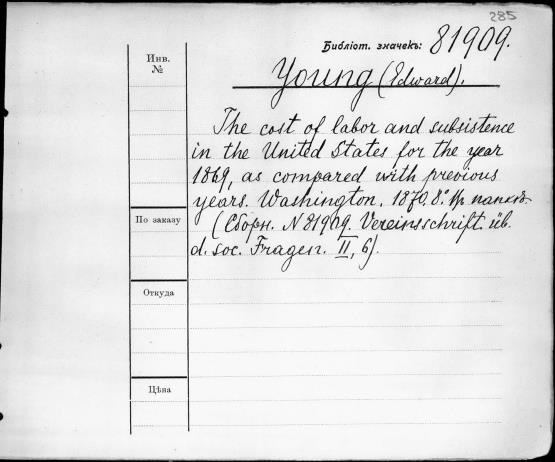 285
Библіот. значекъ: 81909.
Young (Edward).
Инв.
№
The cost of labor and subsistence
in the United States for the year
1869, as compared with previous
years. Washington. 1870. 8°. Въ папкѣ.
(Сборн. N 81909. Vereinsschrift. üb.
d. soc. Fragen. II, 6).
По заказу
Откуда
Цѣна